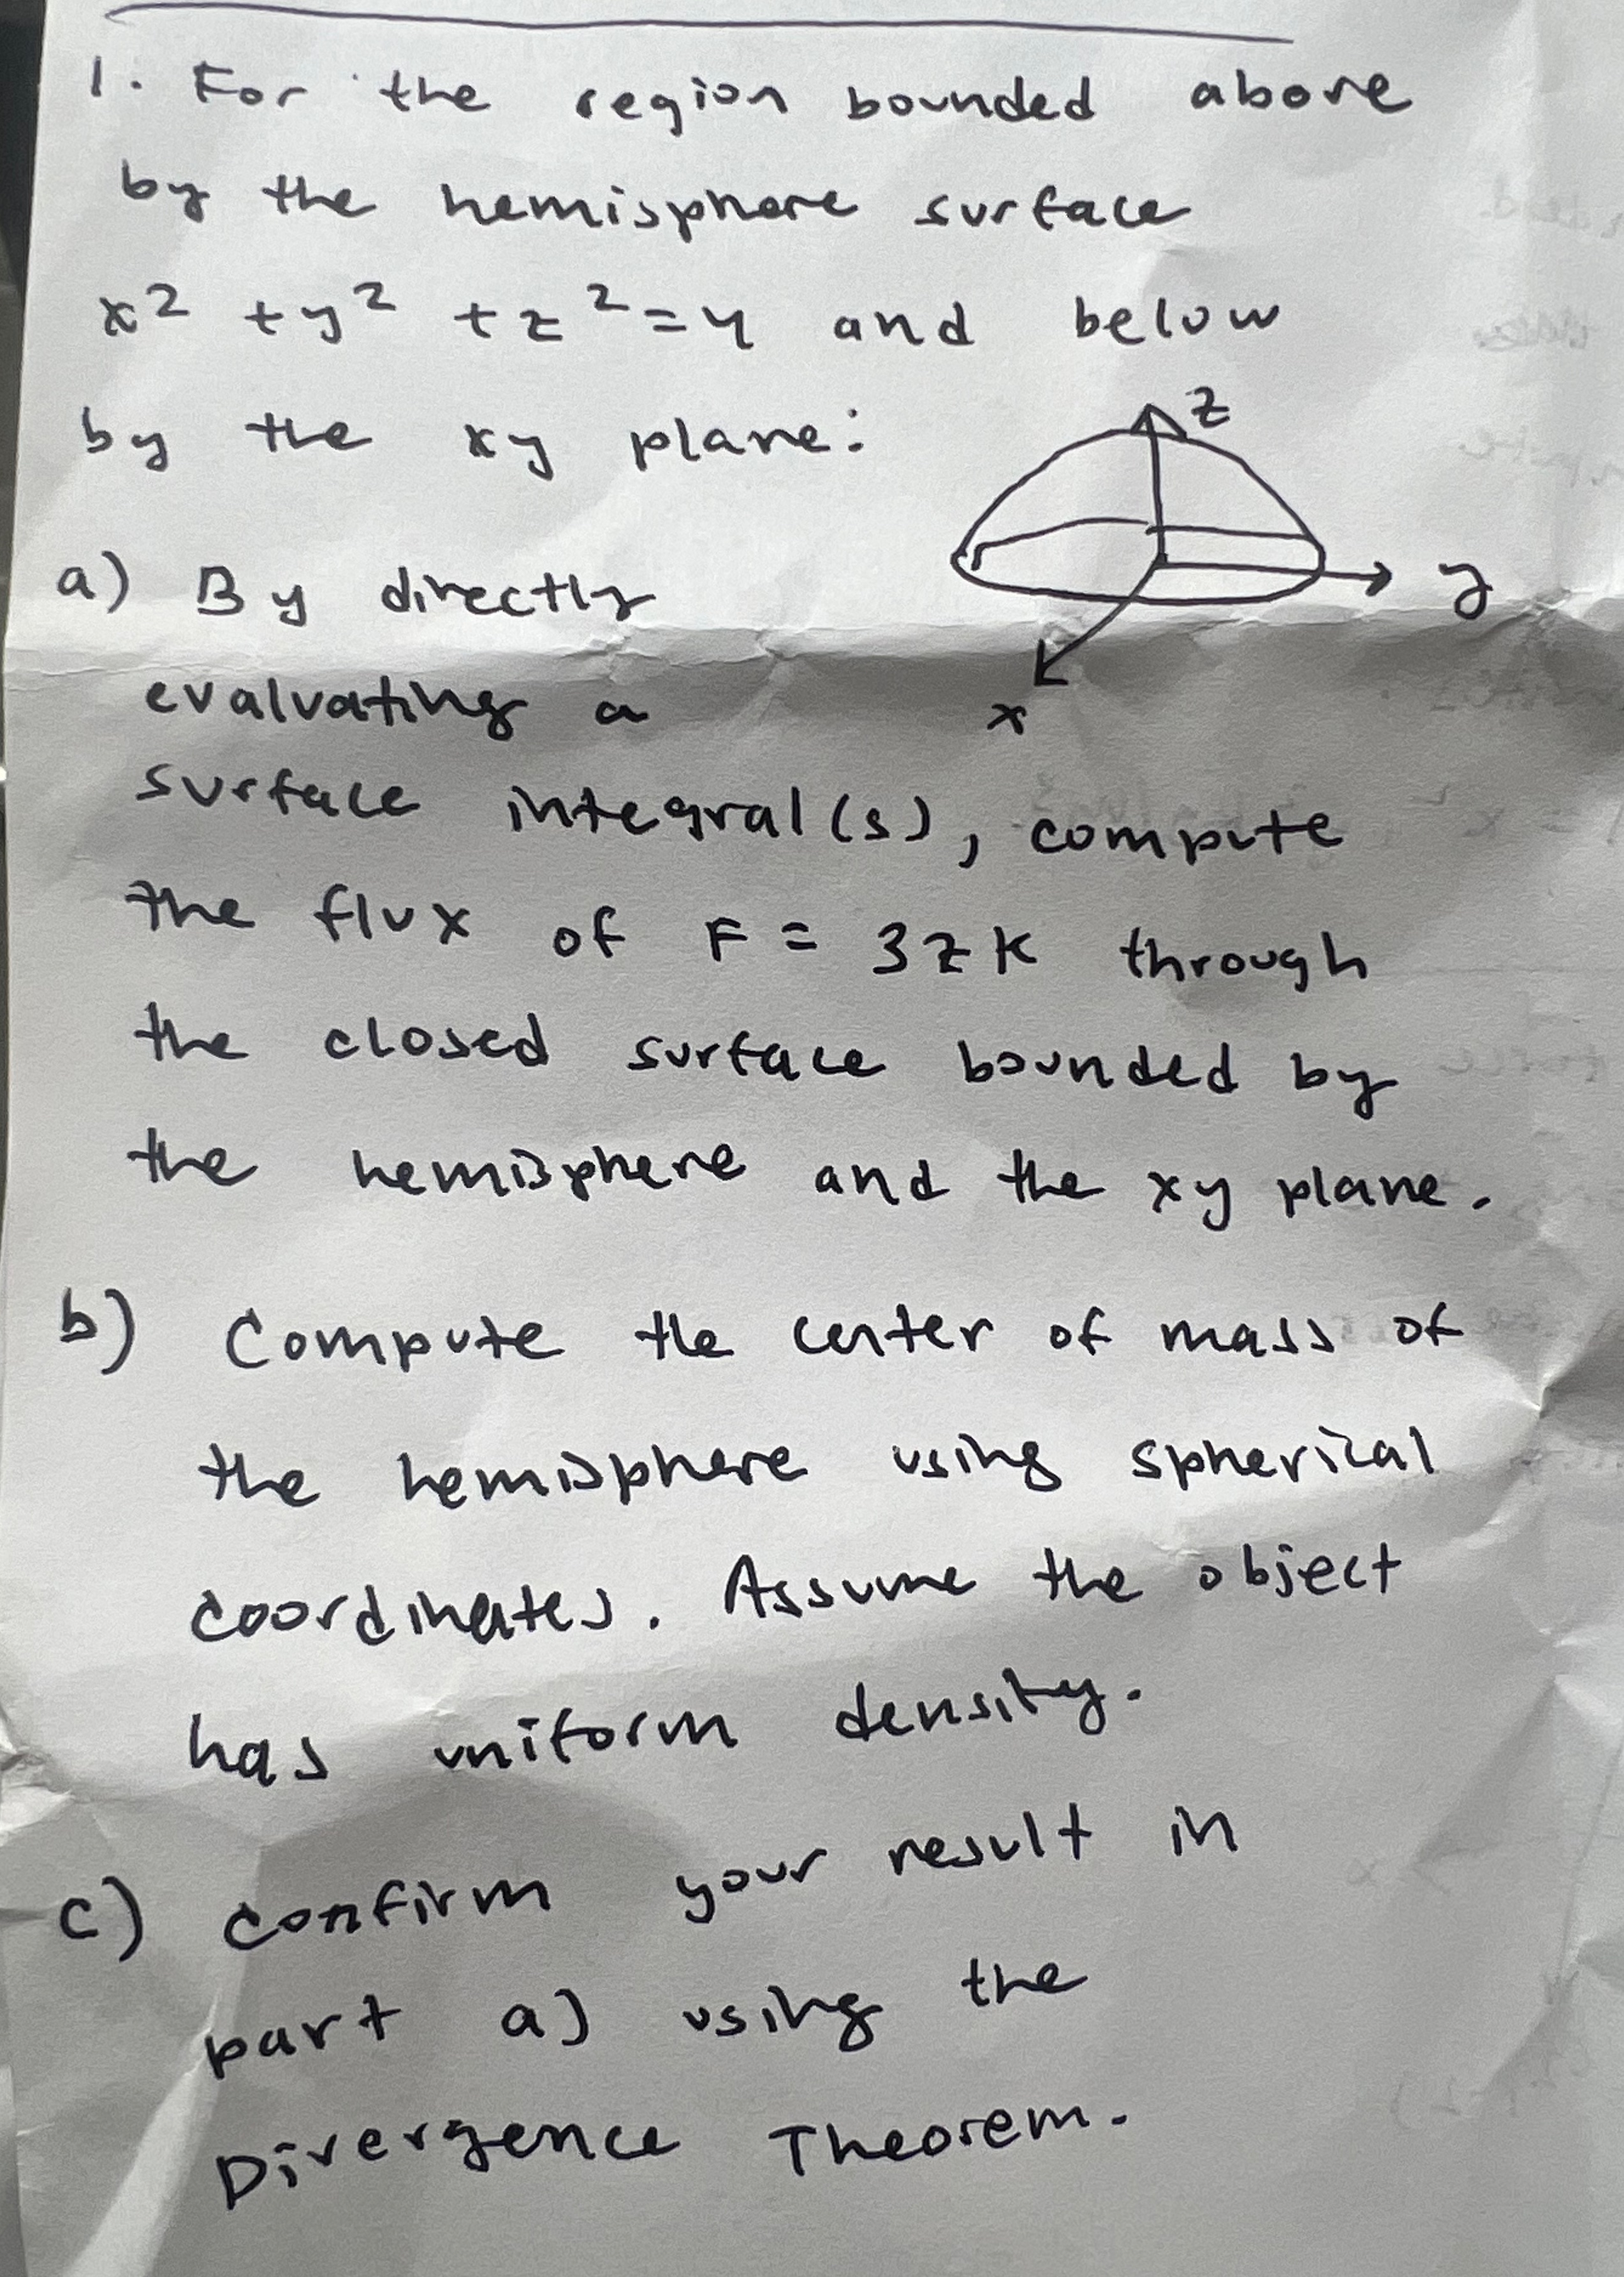 1. For the region bounded above
by the hemisphere surface
x² + y² + z² = 4 and below
by the xy plane:
z
y
x
a) By directly
evaluating a
surface integral(s), compute
the flux of F = 3zk through
the closed surface bounded by
the hemisphere and the xy plane.
b) Compute the center of mass of
the hemisphere using spherical
coordinates. Assume the object
has uniform density.
c) confirm your result in
part a) using the
Divergence Theorem.